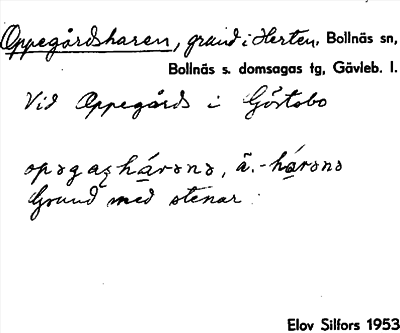 Oppegårdsharen, grund i Herten, Bollnäs sn,
Bollnäs s. domsagas tg, Gävleb. l.
Vid Oppegårds i Göstabo
opəgaʂhárənə, ä.-hárənə
Grund med stenar.
Elov Silfors 1953